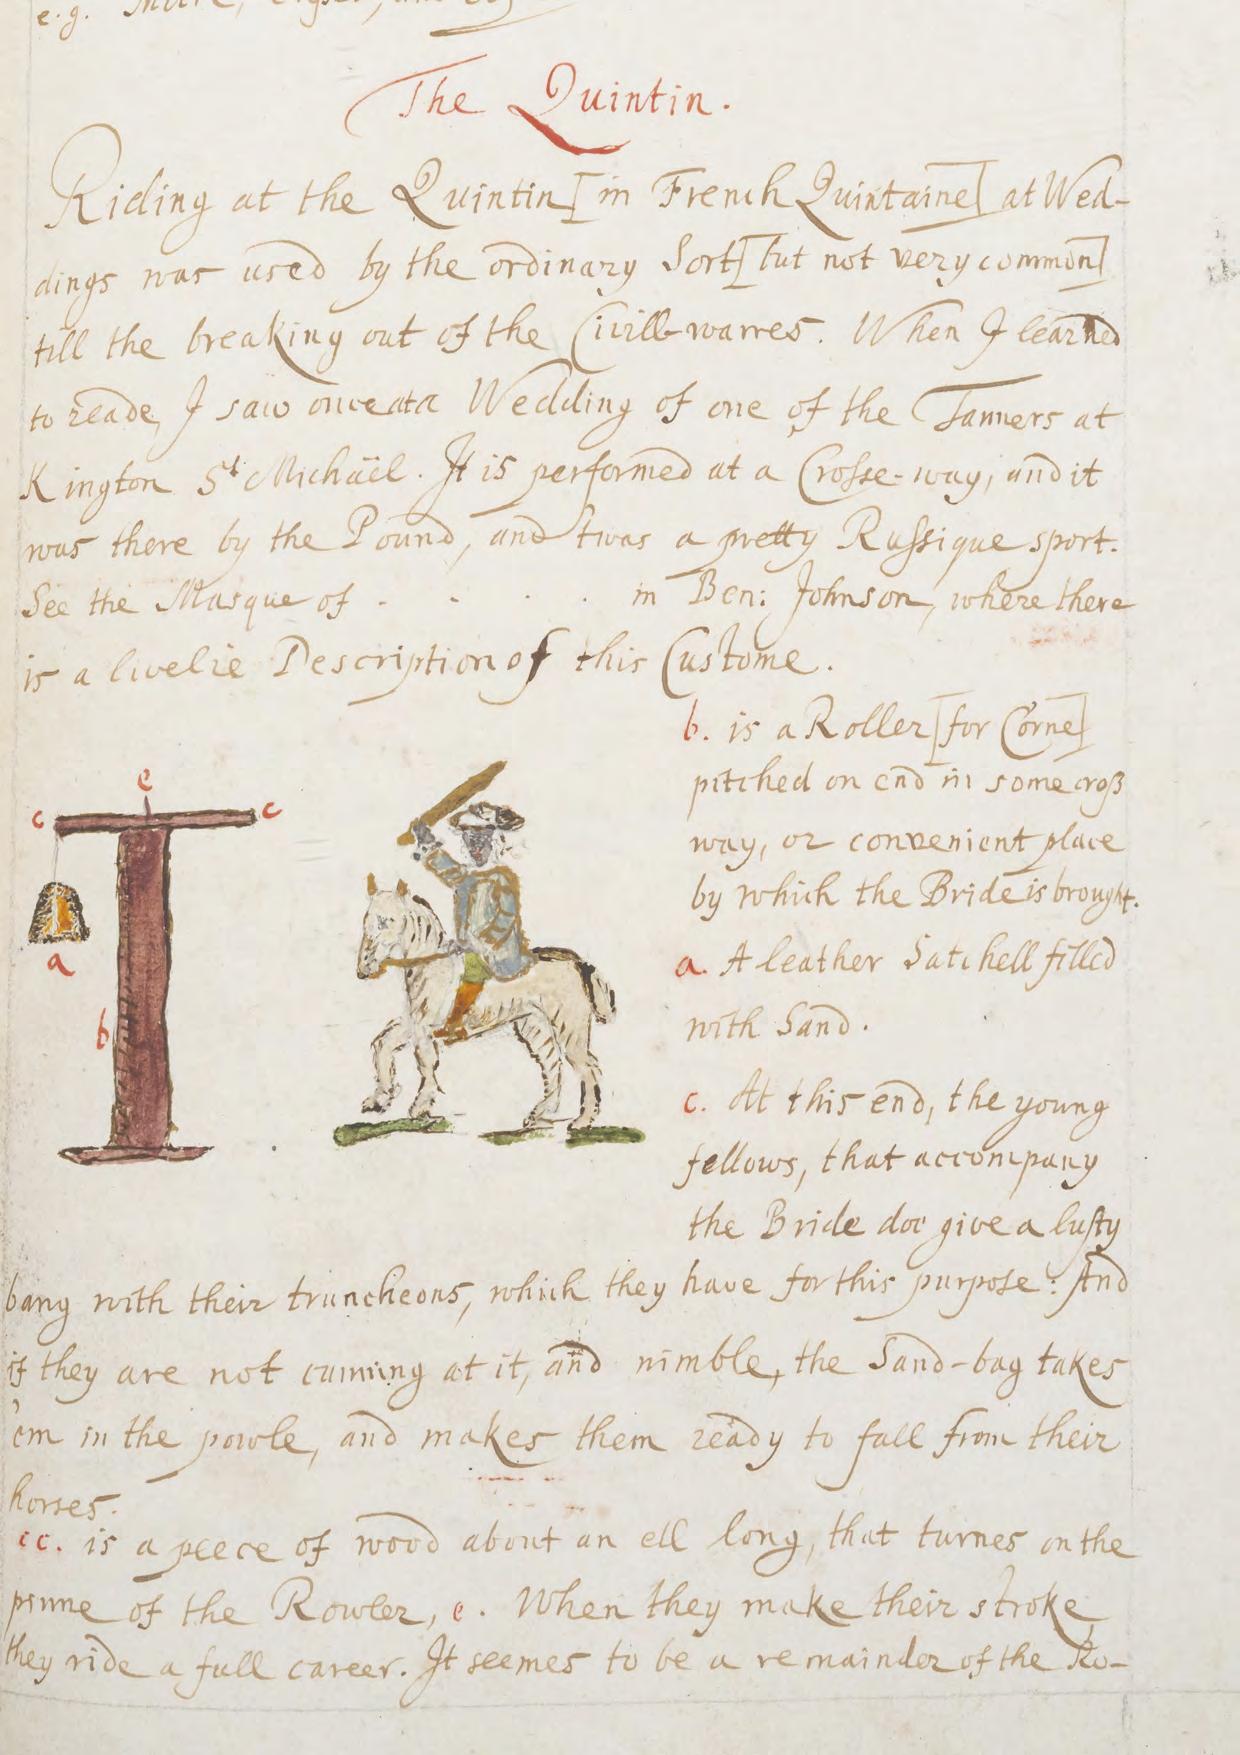 e.g.
The Quintin.
Riding at the Quintin [in French Quintaine] at Wed-
dings was used by the ordinary Sort [but not very common]
till the breaking out of the Civill-warres. When I learned
to reade, I saw once at a Wedding of one of the Tanners at
Kington St Michäel. It is performed at a Crosse-way, and it
was there by the Pound, and twas a pretty Russique sport.
See the Masque of . . . . in Ben: Johnson, where there
is a livelie Description of this Custome.
b. is a Roller [for Corne]
pitched on end in some cross
way, or convenient place
by which the Bride is brought.
a. A leather Satchell filled
with Sand.
c. At this end, the young
fellows, that accompany
the Bride doe give a lusty
bang with their truncheons, which they have for this purpose: And
if they are not cunning at it, and nimble, the Sand-bag takes
'em in the powle, and makes them ready to fall from their
horses.
cc. is a peece of wood about an ell long, that turnes on the
pinne of the Rowler, e. When they make their stroke,
they ride a full career. It seemes to be a remainder of the Ro-
e
c
c
a
b